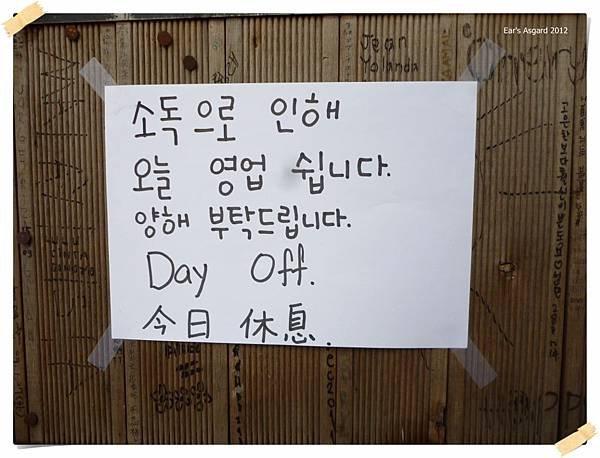 Ear's Asgard 2012
Jean
Yolanda
소독으로 인해
오늘 영업 쉽니다.
양해 부탁드립니다.
Day Off.
今日 休息.